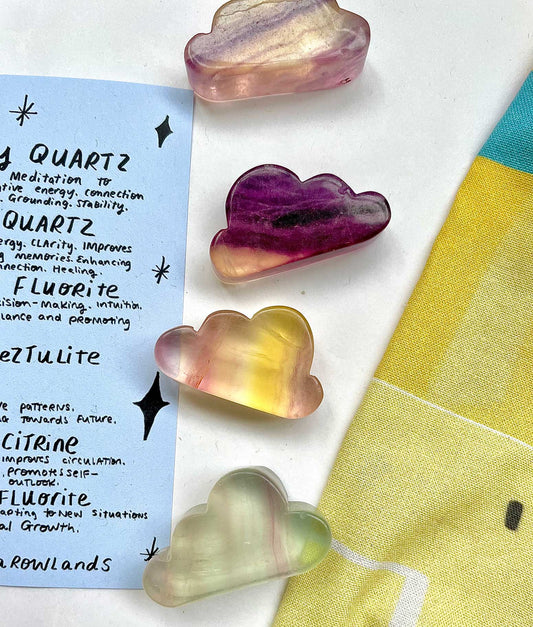 QUARTZ
Meditation to
energy. connection
Grounding. Stability.
QUARTZ
Clarity. Improves
memories. Enhancing
Healing.
Fluorite
-Making. intuition.
and promoting
eztulite
patterns.
towards future.
Citrine
improves circulation.
promotes self-
outlook.
Fluorite
to new situations
Growth.
Rowlands